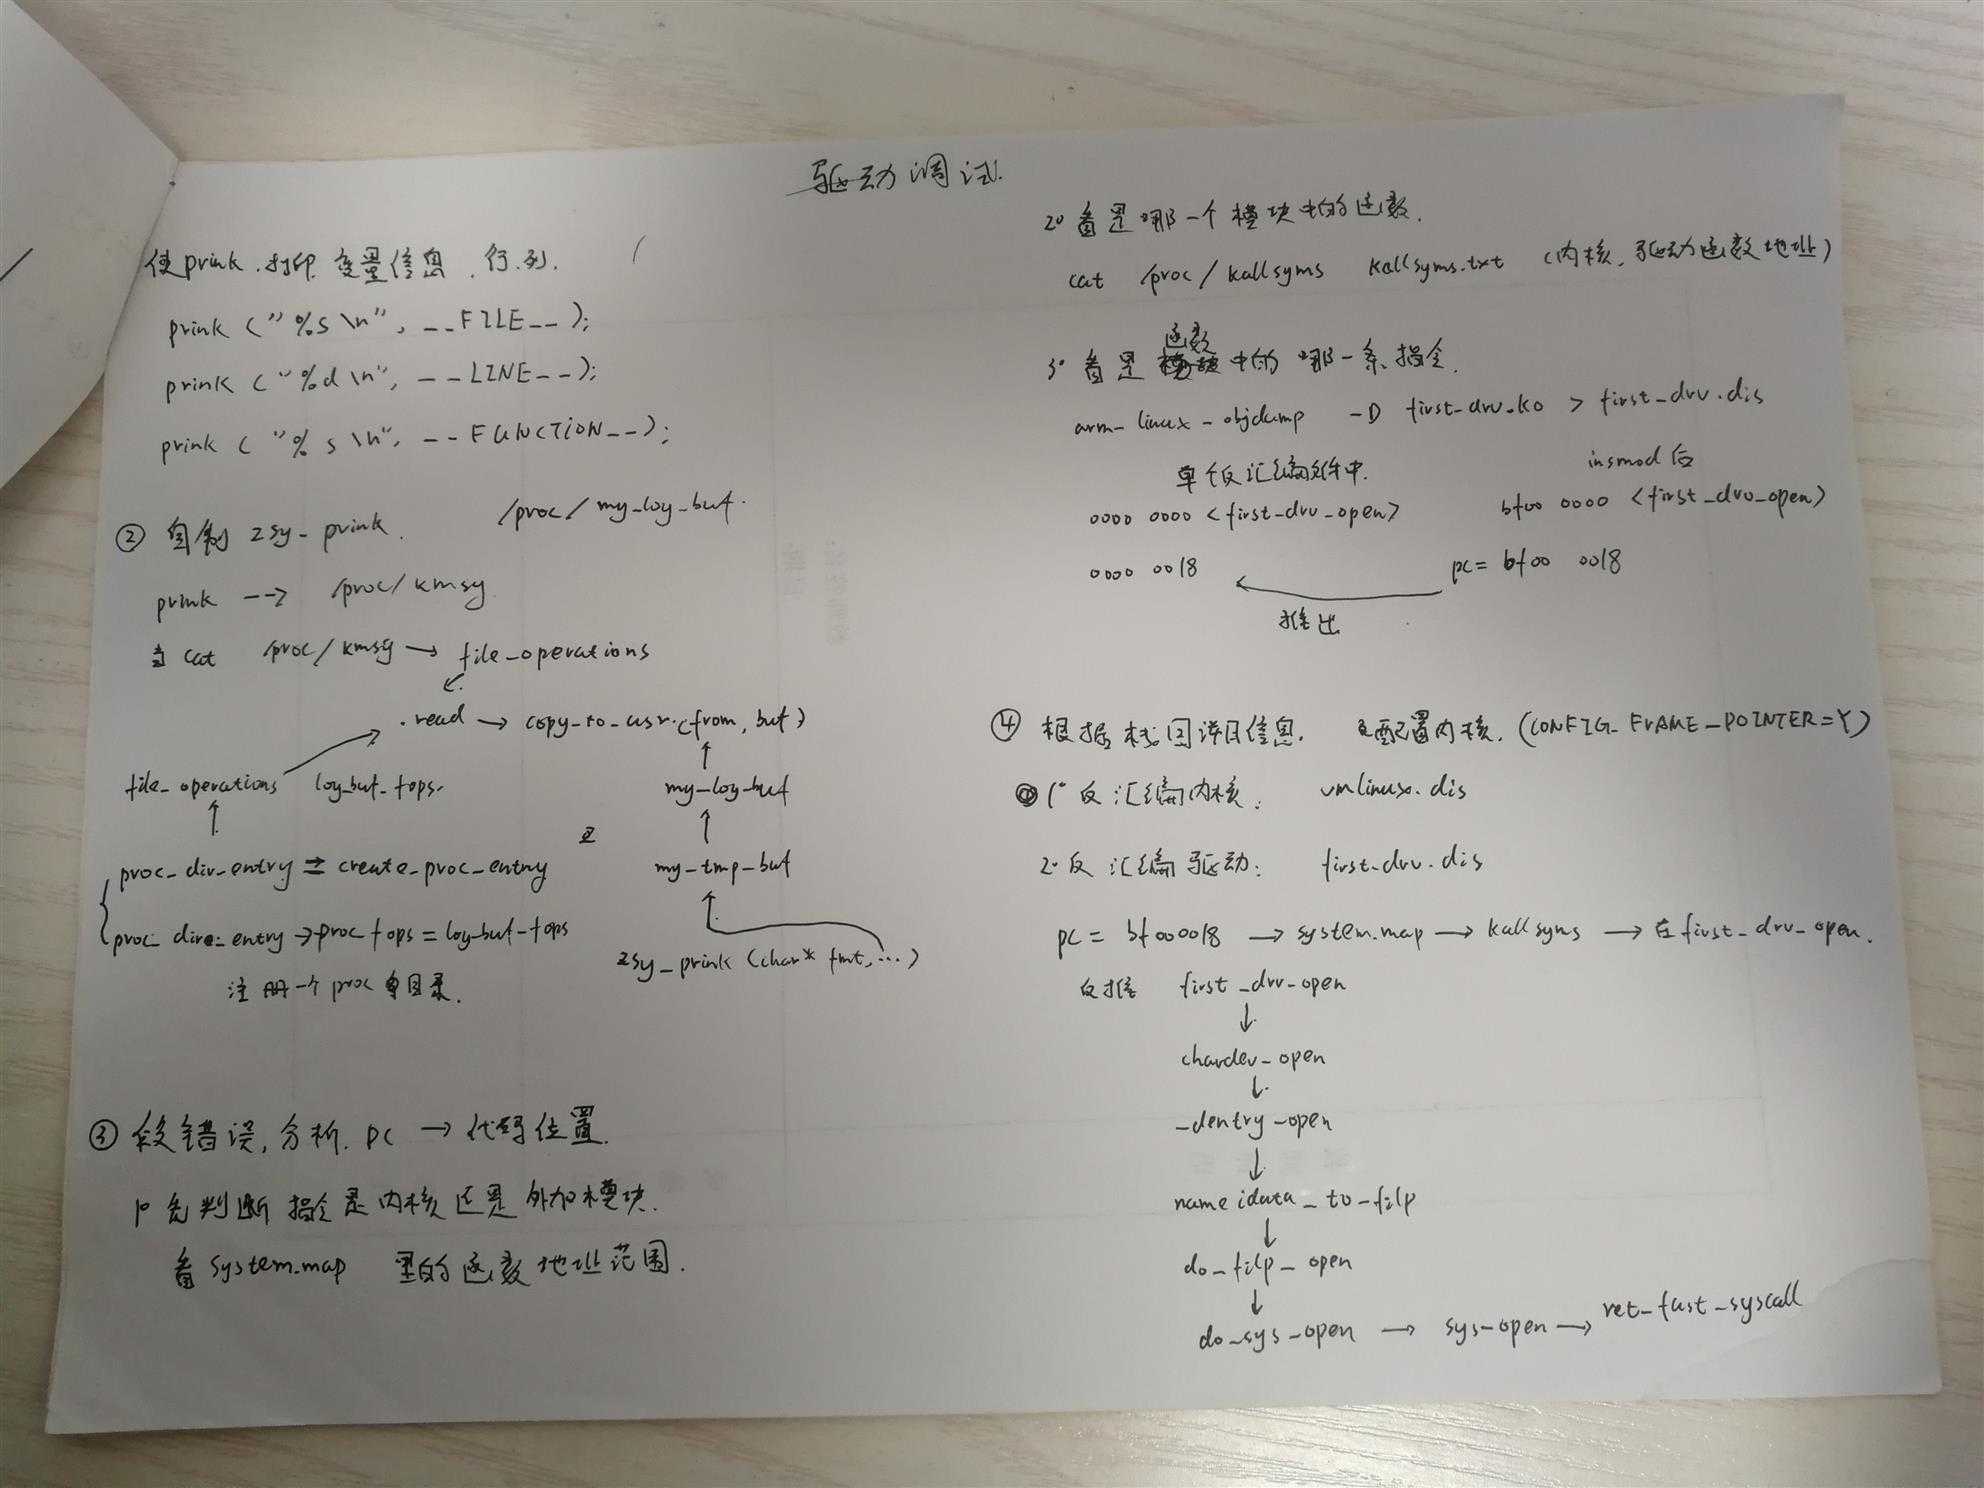 驱动调试.
使prink.打印.变量信息.行.列.
prink ("%s \n", __FILE__);
prink ("%d \n", __LINE__);
prink ("%s \n", __FUNCTION__);
② 自制 zsy_prink. /proc/my_log_buf.
prink --> /proc/kmsg
当 cat /proc/kmsg → file_operations
.read → copy_to_usr.(from, buf)
file_operations log_buf_fops. my_log_buf
proc_dir_entry = create_proc_entry my_tmp_buf
proc_dire_entry → proc fops = log_buf_fops
zsy_prink (char* fmt, ...)
注册一个 proc 目录.
③ 段错误,分析. PC → 代码位置.
1° 先判断 指令是内核还是外加模块.
看 system.map 里的函数地址范围.
2° 看是哪一个模块中的函数.
cat /proc/kallsyms kallsyms.txt (内核、驱动函数地址)
3° 看是函数中的哪一条指令.
arm_linux_objdump -D first_drv.ko > first_drv.dis
单个反汇编文件中. insmod 后
0000 0000 <first_drv_open> bf00 0000 <first_drv_open>
0000 0018 pc= bf00 0018
推出
④ 根据栈回溯信息. 配置内核. (CONFIG_FRAME_POINTER=Y)
1° 反汇编内核: vmlinux.dis
2° 反汇编驱动: first_drv.dis
pc = bf000018 → system.map → kallsyms → 在 first_drv_open.
反推 first_drv_open
↓
chardev_open
↓
_dentry_open
↓
nameidata_to_filp
↓
do_filp_open
↓
do_sys_open → sys_open → ret_fast_syscall